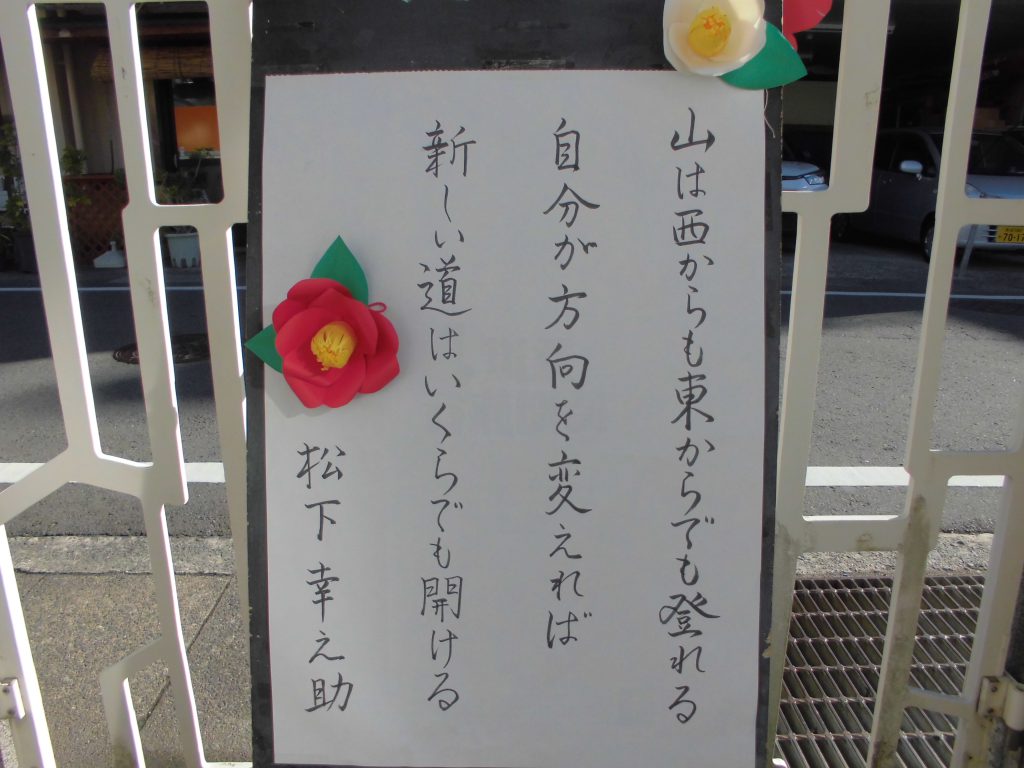 山は西からも東からでも登れる
自分が方向を変えれば
新しい道はいくらでも開ける
松下幸之助